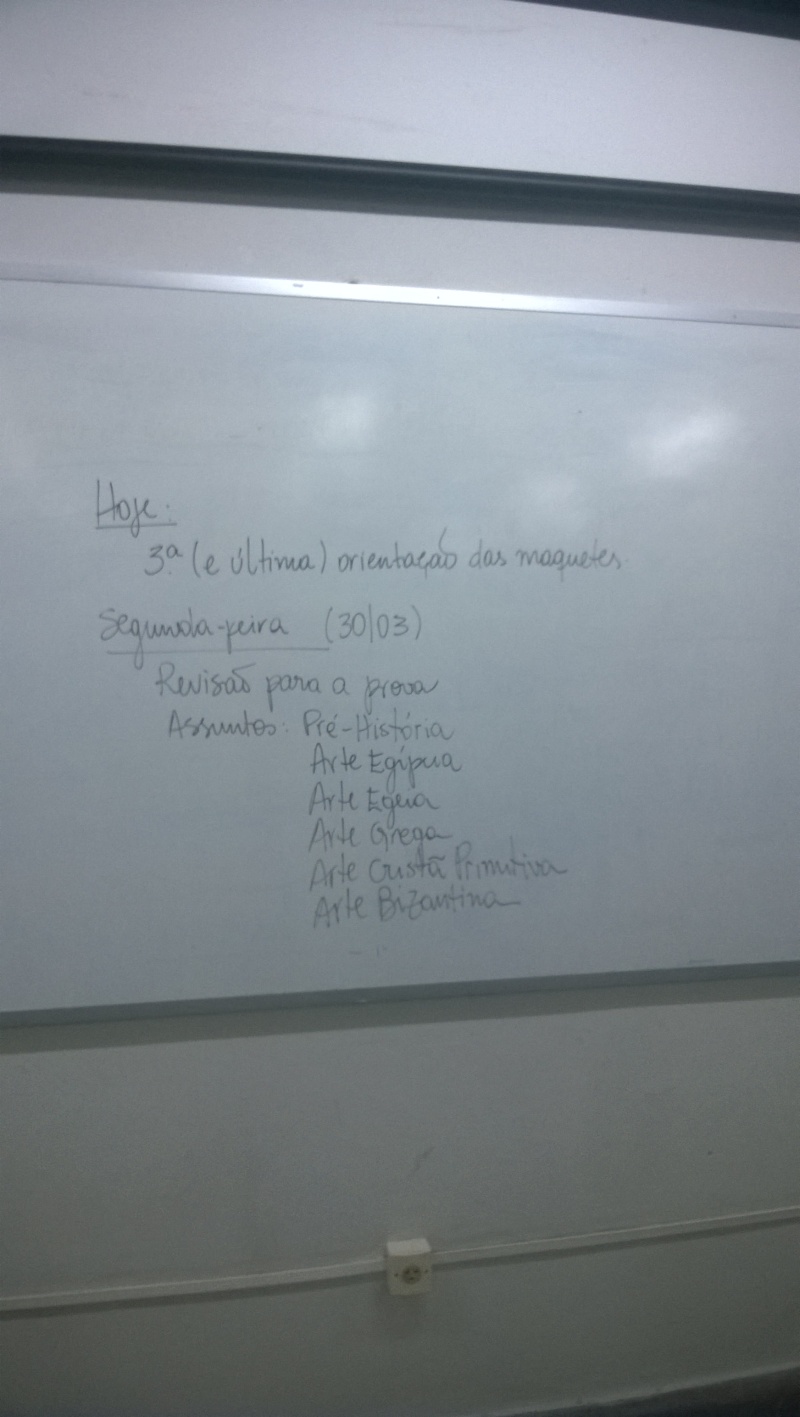 Hoje:
3ª (e última) orientação das maquetes.
Segunda-feira (30/03)
Revisão para a prova
Assuntos: Pré-História
Arte Egípcia
Arte Egeia
Arte Grega
Arte Cristã Primitiva
Arte Bizantina